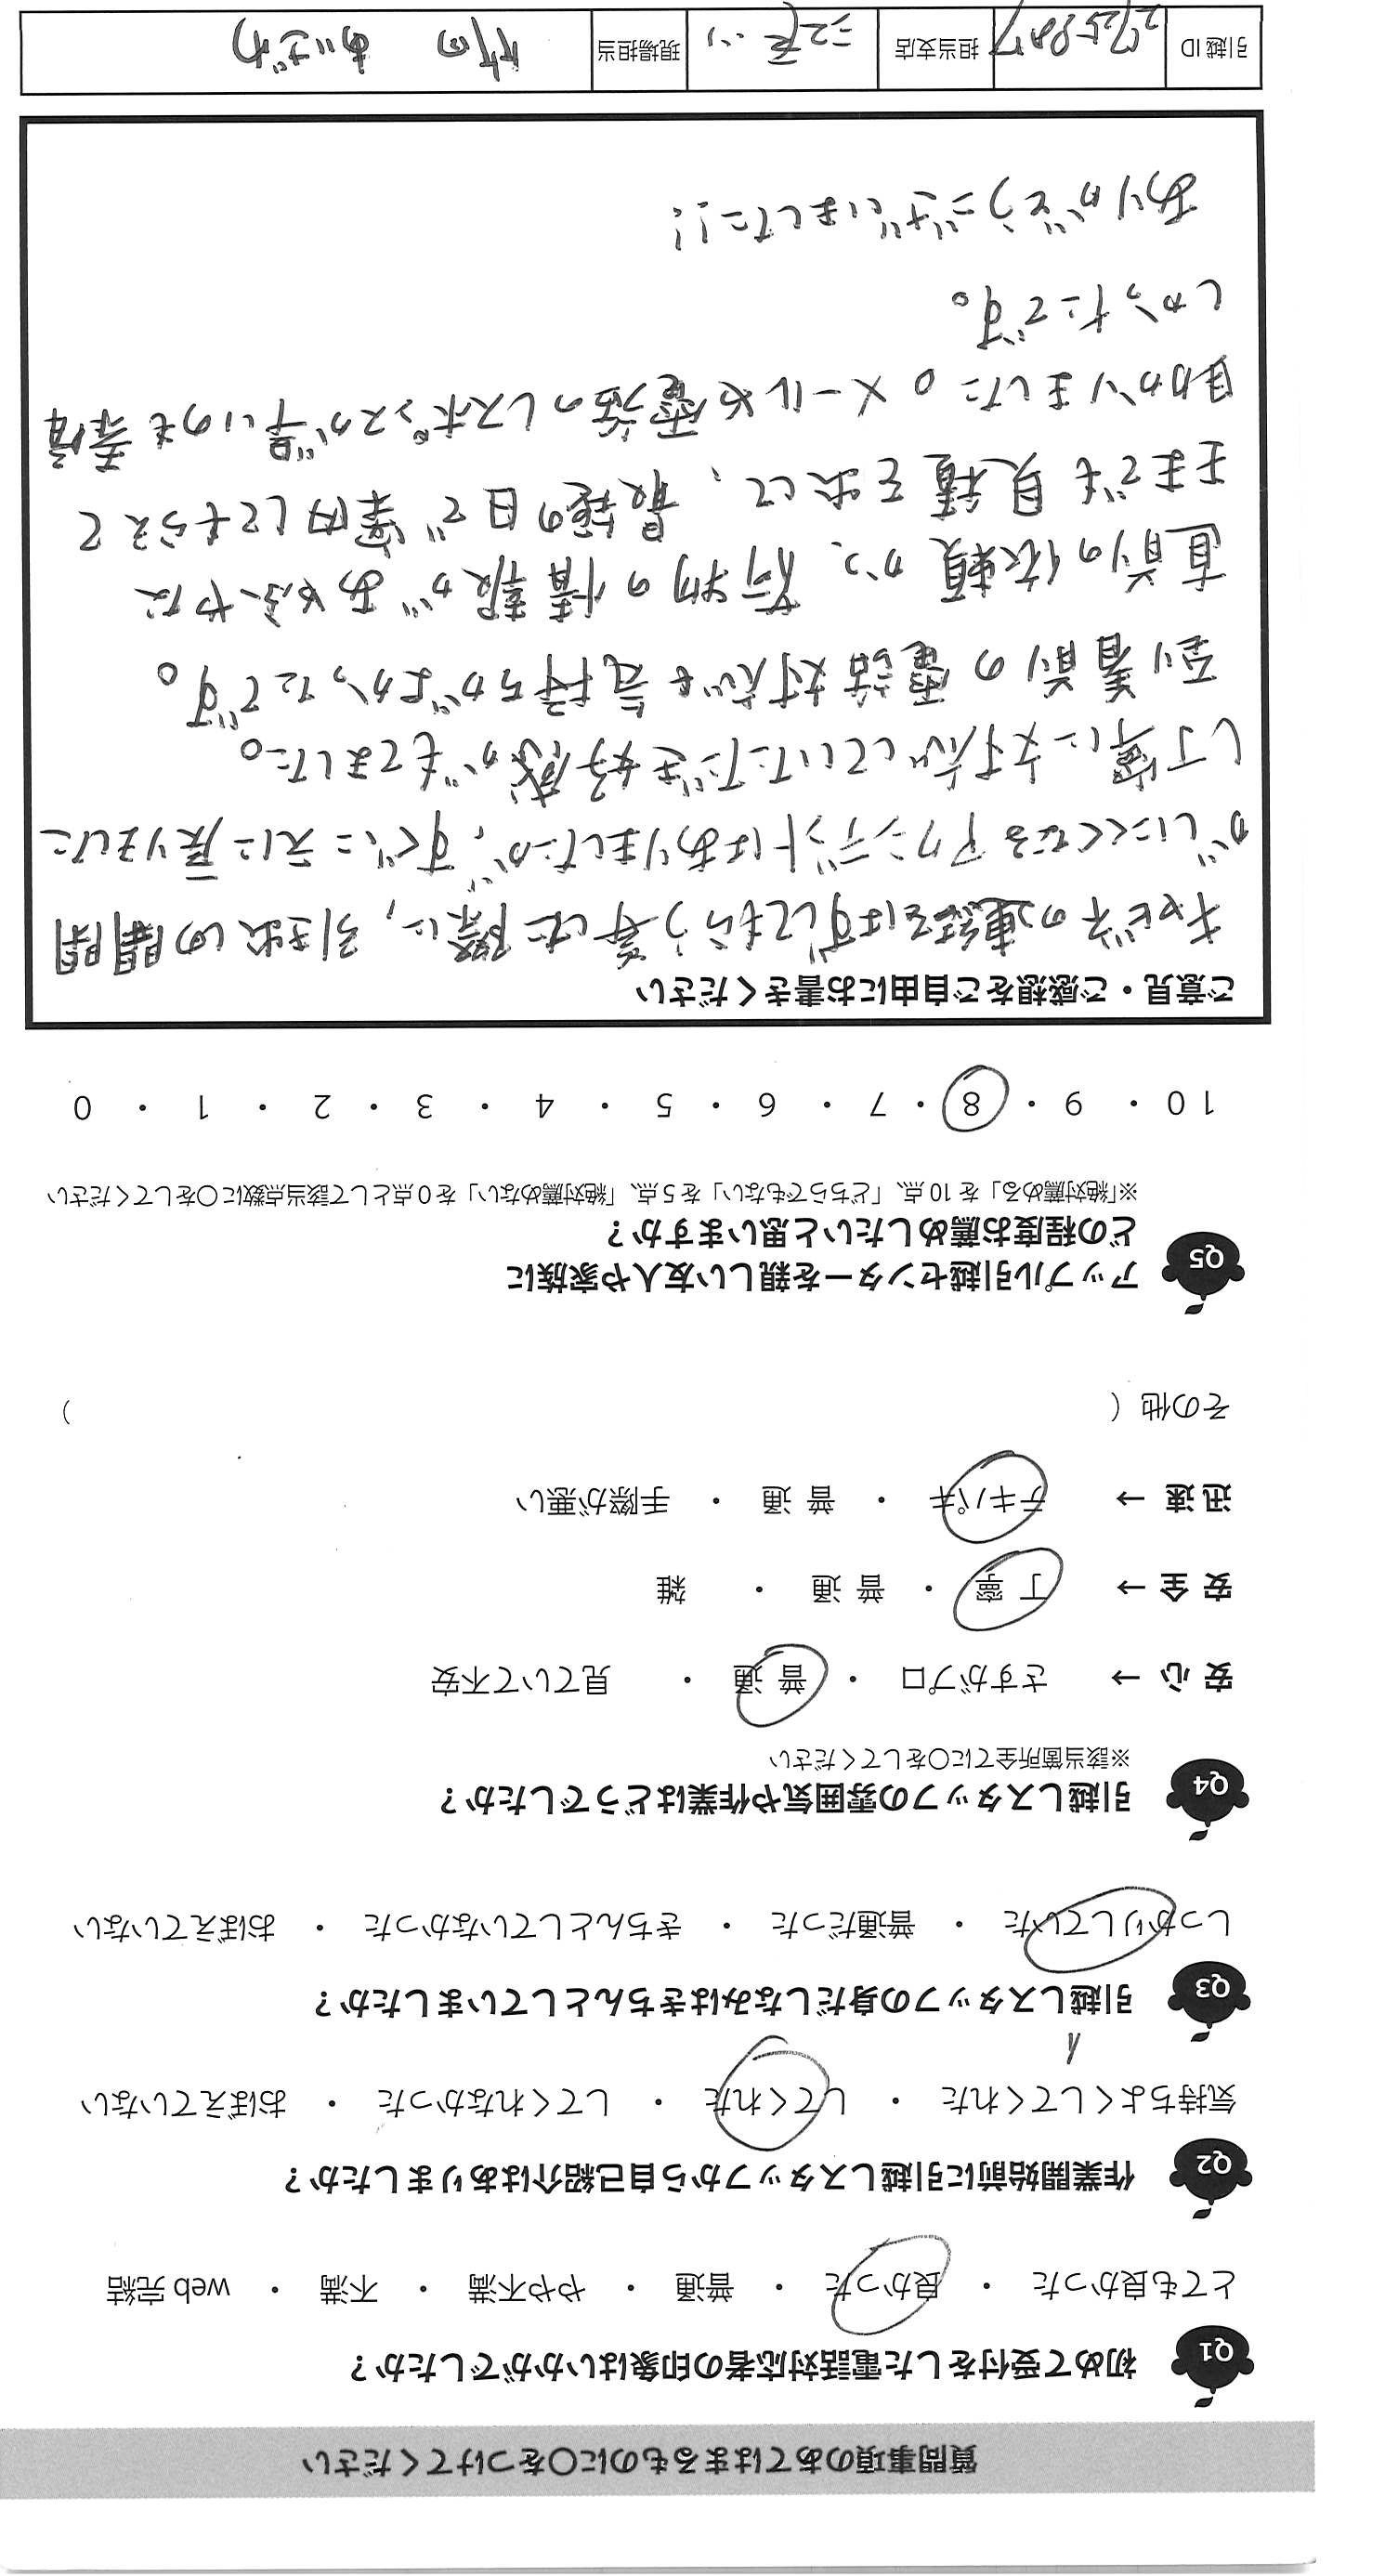 質問事項のあてはまるものに〇をつけてください
Q1 初めて受付をした電話対応者の印象はいかがでしたか？
とても良かった ・ 良かった ・ 普通 ・ やや不満 ・ 不満 ・ web 完結
Q2 作業開始前に引越しスタッフから自己紹介はありましたか？
気持ちよくしてくれた ・ してくれた ・ してくれなかった ・ おぼえていない
Q3 引越しスタッフの身だしなみはきちんとしていましたか？
しっかりしていた ・ 普通だった ・ きちんとしていなかった ・ おぼえていない
Q4 引越しスタッフの雰囲気や作業はどうでしたか？
※該当箇所全てに〇をしてください
安 心 → さすがプロ ・ 普 通 ・ 見ていて不安
安 全 → 丁 寧 ・ 普 通 ・ 雑
迅 速 → テキパキ ・ 普 通 ・ 手際が悪い
その他（ ）
Q5 アップル引越センターを親しい友人や家族に
どの程度お薦めしたいと思いますか？
※「絶対薦める」を 10 点、「どちらでもない」を 5 点、「絶対薦めない」を 0 点として該当点数に〇をしてください
10 ・ 9 ・ 8 ・ 7 ・ 6 ・ 5 ・ 4 ・ 3 ・ 2 ・ 1 ・ 0
ご意見・ご感想をご自由にお書きください
キャビネの連結をはずしてもらう等した際に、引き出しの開閉
がしにくくなるアクシデントはありましたが、すぐに元に戻りました
し丁寧に対応していただき好感がもてました。
到着前の電話対応も気持ちがよかったです。
直前の依頼かつ、荷物の情報があやふやな
ままでも見積を出して、最短の日で案内してもらえて
助かりました。メールや電話のレスポンスが早いのも素晴
しかったです。
ありがとうございました!!
引越ID
担当支店
現場担当 竹内 あいざわ